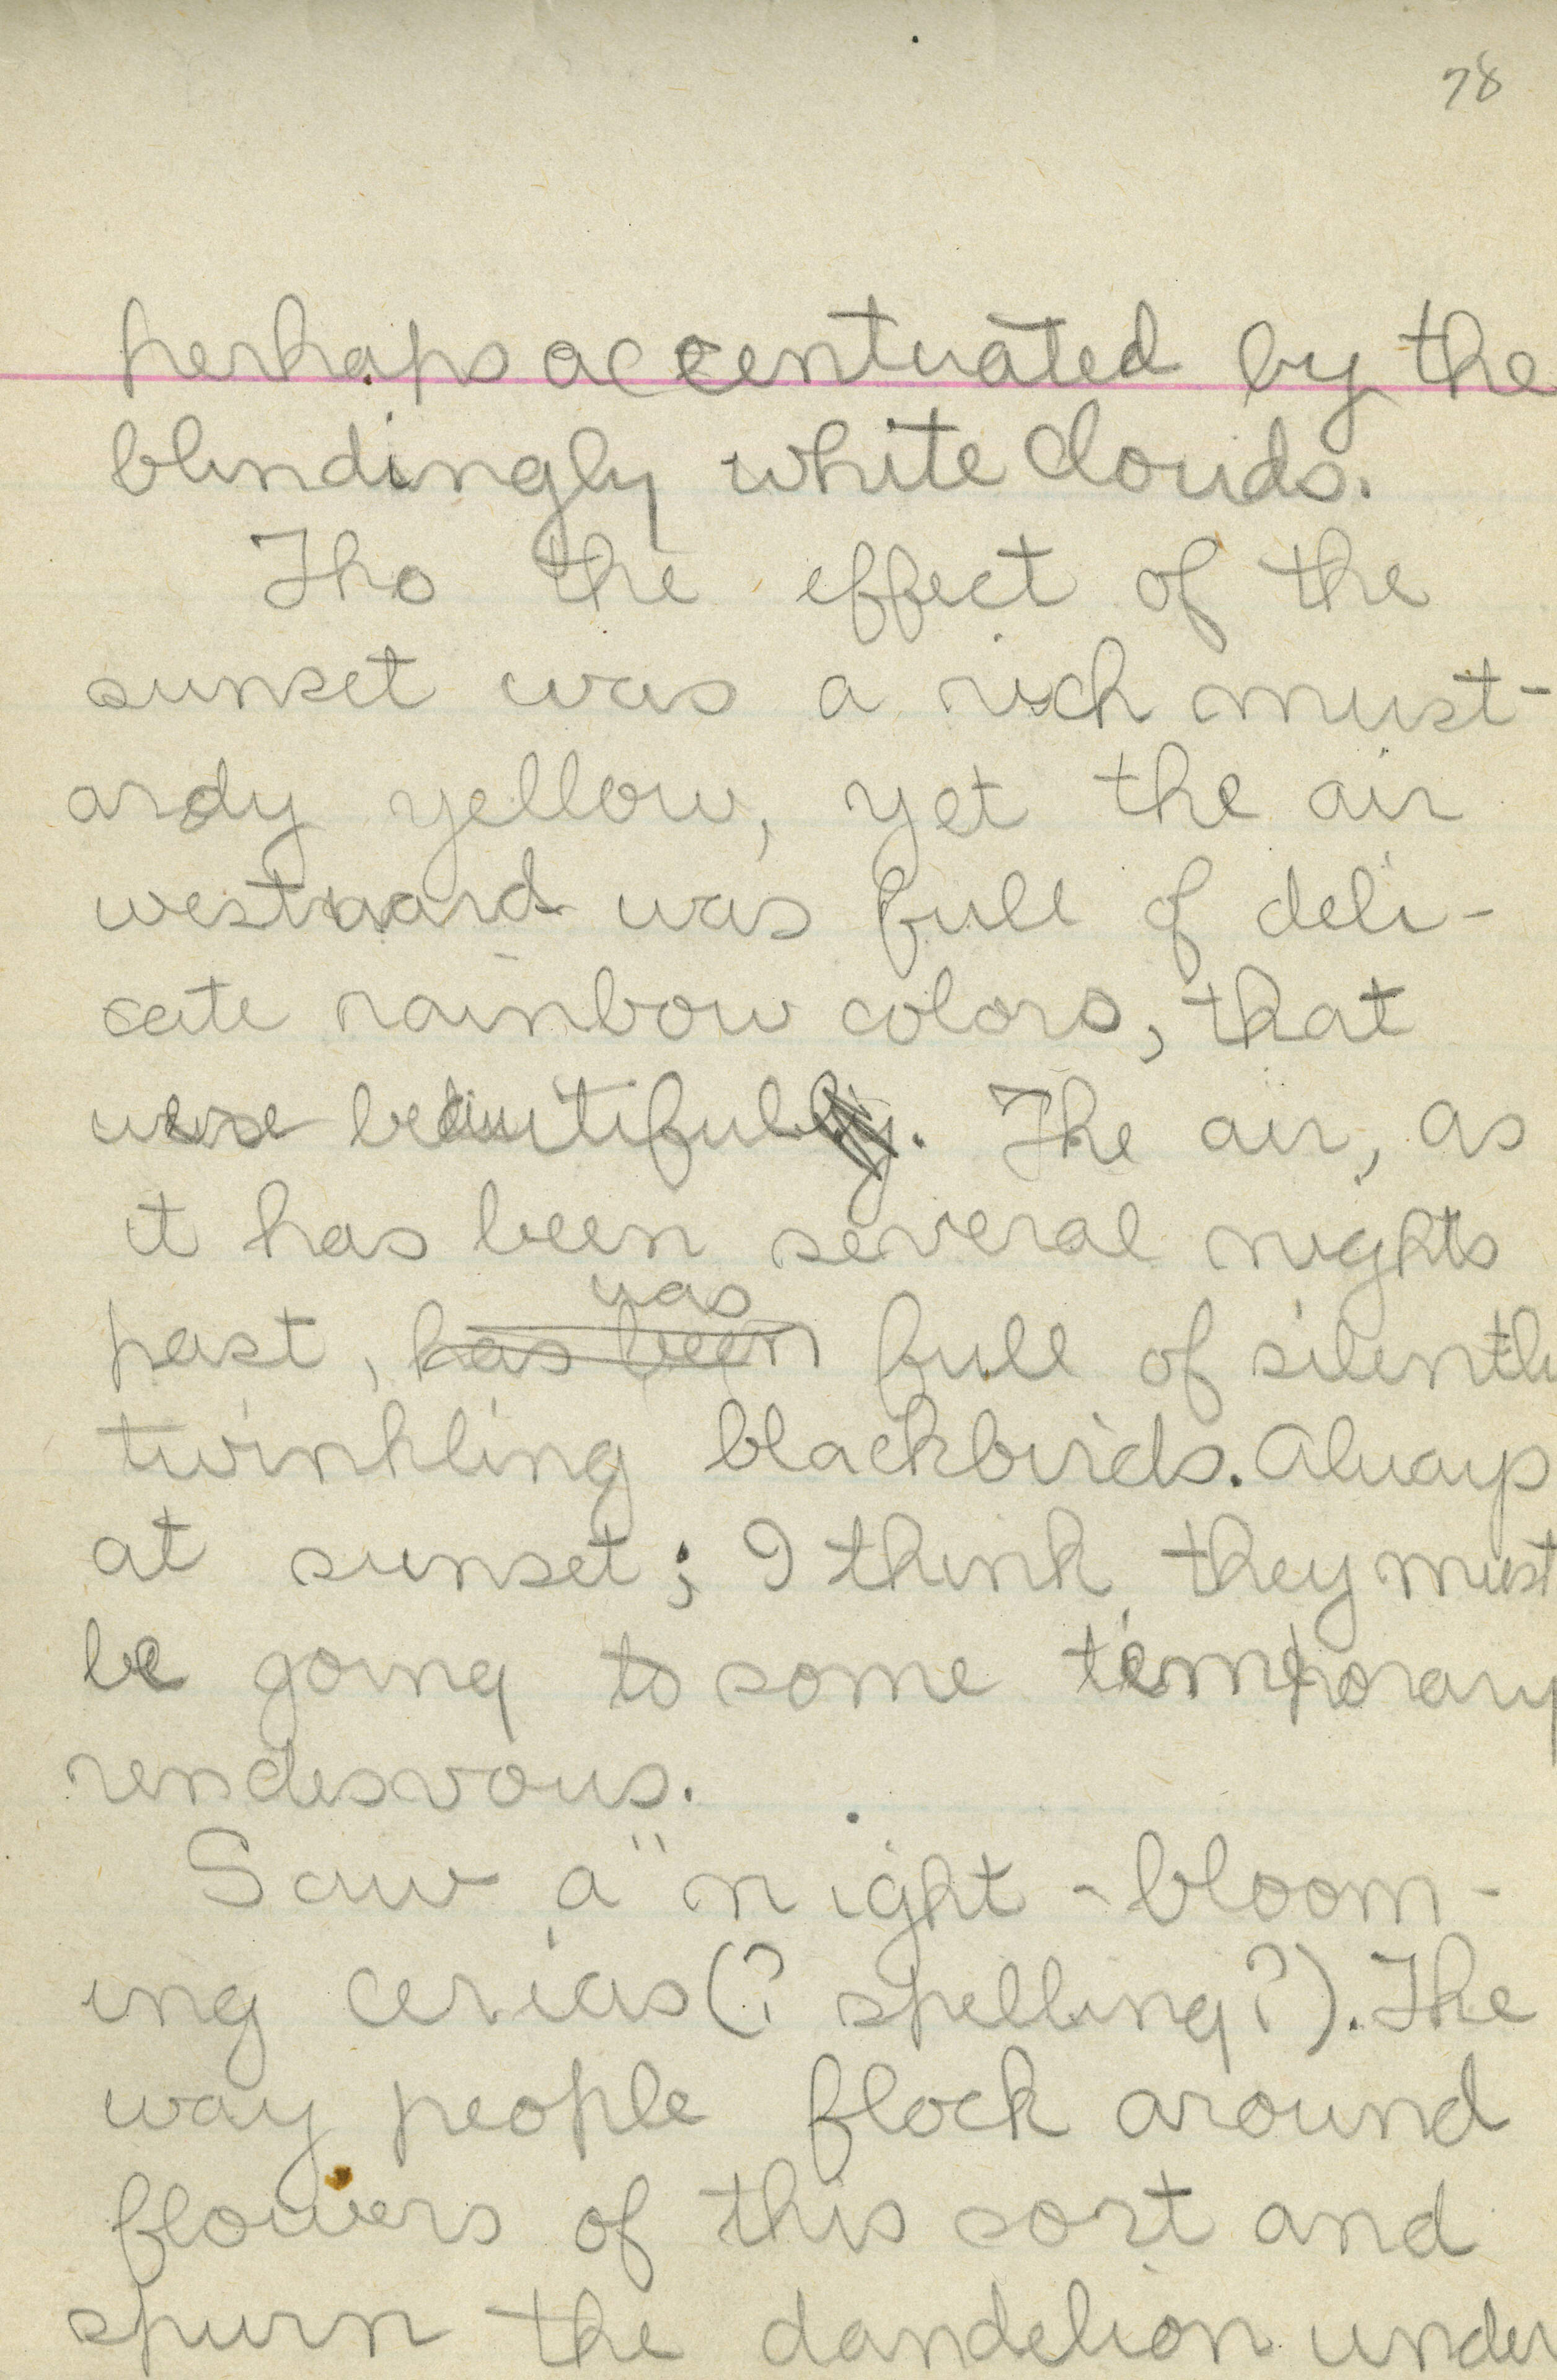 78
perhaps accentuated by the
blindingly white clouds.
Tho the effect of the
sunset was a rich must-
ardy yellow, yet the air
westward was full of deli-
cate rainbow colors, that
were beautifully. The air, as
it has been several nights
was
past, has been full of silently
twinkling blackbirds. Always
at sunset; I think they must
be going to some temporary
rendesvous.
Saw a "night-bloom-
ing cerias (? spelling?). The
way people flock around
flowers of this sort and
spurn the dandelion under